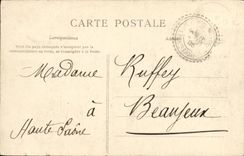 CARTE POSTALE
Correspondance
Madame Ruffey
à Beaujeux
Haute Saône